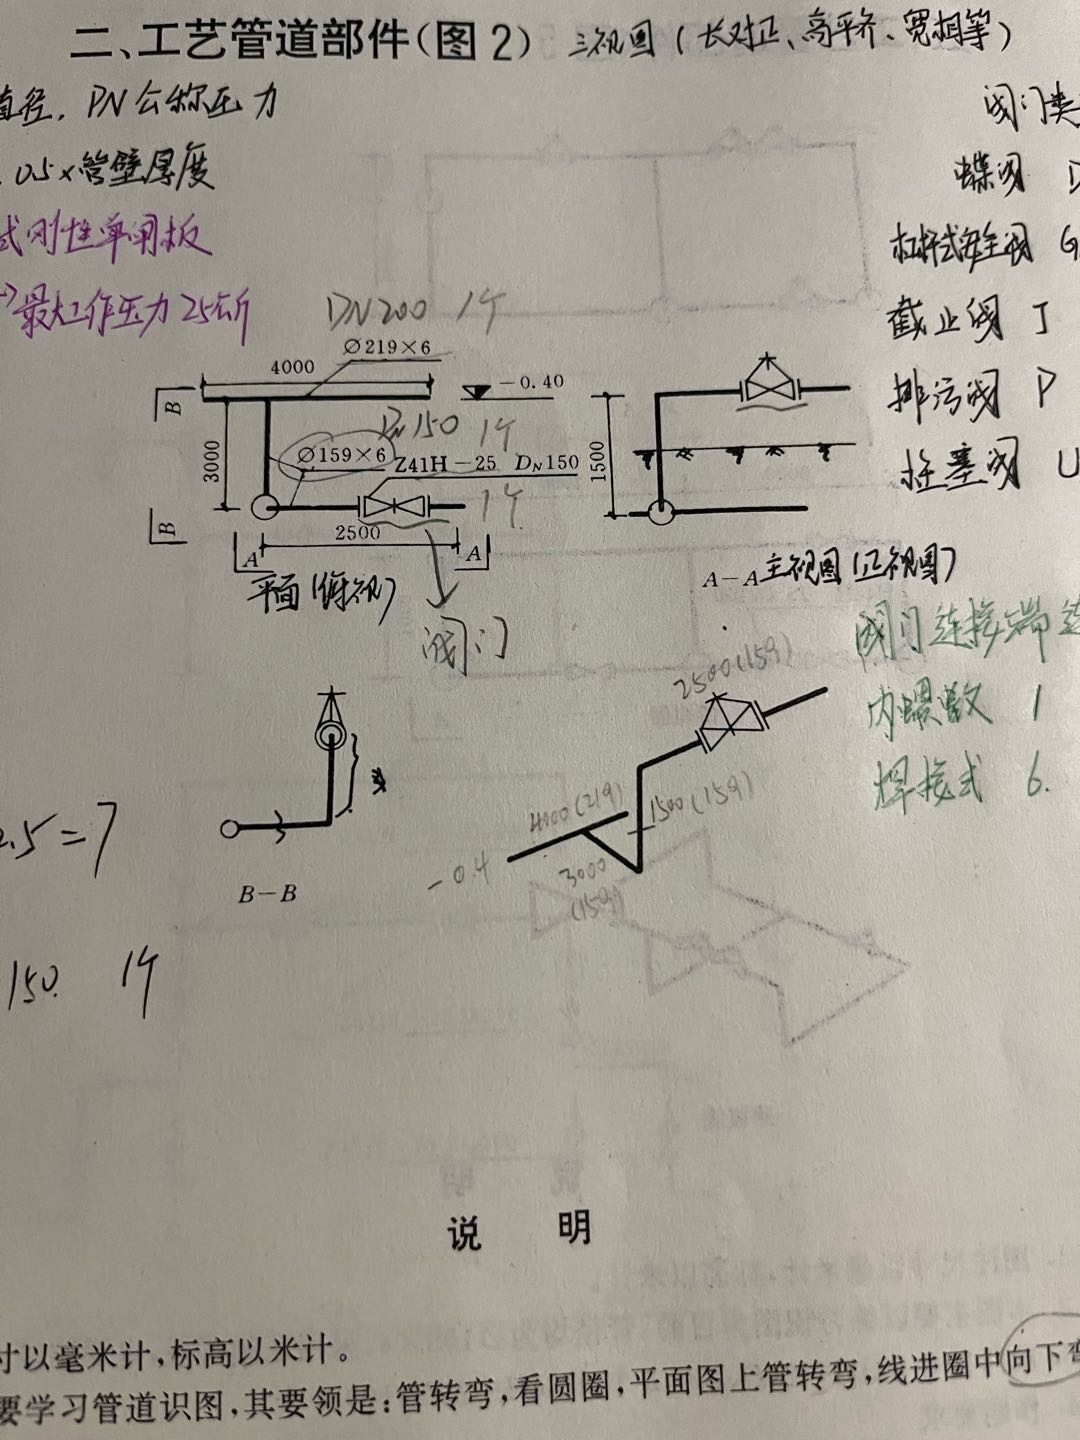 二、工艺管道部件(图2) 三视图(长对正、高平齐、宽相等)
直径, PN公称压力
阀门类
0.5×管壁厚度
蝶阀 D
式刚性单闸板
杠杆式安全阀 G
最大工作压力25公斤
DN200 1个
截止阀 J
Ø219×6
4000
-0.40
B
排污阀 P
DN150 1个
3000
Ø159×6 Z41H-25 DN150
1500
柱塞阀 U
1个
B
2500
A A
平面(俯视)
A-A主视图(正视图)
阀门
阀门连接端连
2500(159)
内螺纹 1
焊接式 6.
4000(219)
1500(159)
2.5=7
-0.4
3000
(159)
B-B
150. 1个
说 明
寸以毫米计,标高以米计。
要学习管道识图,其要领是:管转弯,看圆圈,平面图上管转弯,线进圈中向下弯